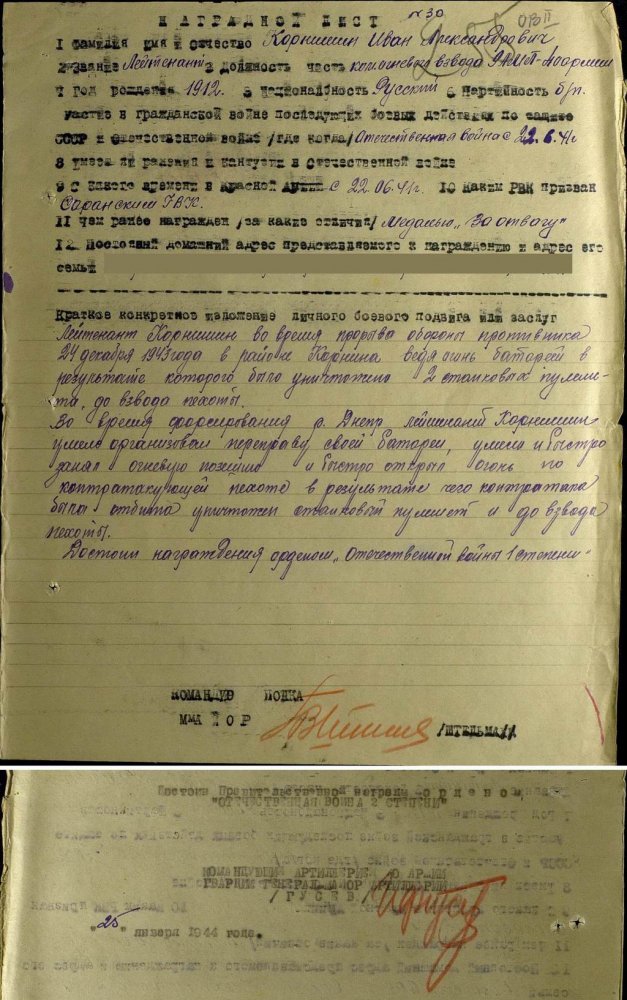 НАГРАДНОЙ ЛИСТ №30
1 Фамилия имя и отчество Корнишин Иван Александрович
2 Звание Лейтенант 3 Должность часть ком. огневого взвода
4 Год рождения 1912. 5 Национальность Русский 6 Партийность б/п.
участие в гражданской войне последующих боевых действиях по защите
СССР и отечественной войне /где когда/ Отечественная война с 22.6.41г
8 имеет ли ранения и контузии в отечественной войне
9 С какого времени в Красной Армии с 22.06.41г. 10 Каким РВК призван
Саранским ГВК.
11 Чем ранее награжден /за какие отличия/ Медалью „За отвагу"
12 Постояный домашний адрес представляемого к награждению и адрес его
семьи
Краткое конкретное изложение личного боевого подвига или заслуг
Лейтенант Корнишин во время прорыва обороны противника
24 декабря 1943 года в районе Корнина ведя огнь батареей в
результате которого было уничтожено 2 станковых пулеме-
та, до взвода пехоты.
Во время форсирования р. Днепр лейтенант Корнишин
умело организовал переправу своей батареи, умело и быстро
занял огневую позицию и быстро открыл огонь по
контратакующей пехоте в результате чего контратака
была отбита уничтожен станковый пулемет и до взвода
пехоты.
Достоин награждения орденом „Отечественной войны 1 степени"
КОМАНДИР ПОЛКА
МАЙОР /ШТЕЛЬМАХ/
Достоин Правительственной награды орденом
"ОТЕЧЕСТВЕННАЯ ВОЙНА 2 СТЕПЕНИ"
КОМАНДУЮЩИЙ АРТИЛЛЕРИЕЙ АРМИИ
ГВАРДИИ ГЕНЕРАЛ МАЙОР АРТИЛЛЕРИИ
/ГУСЕВ/
"25" января 1944 года.